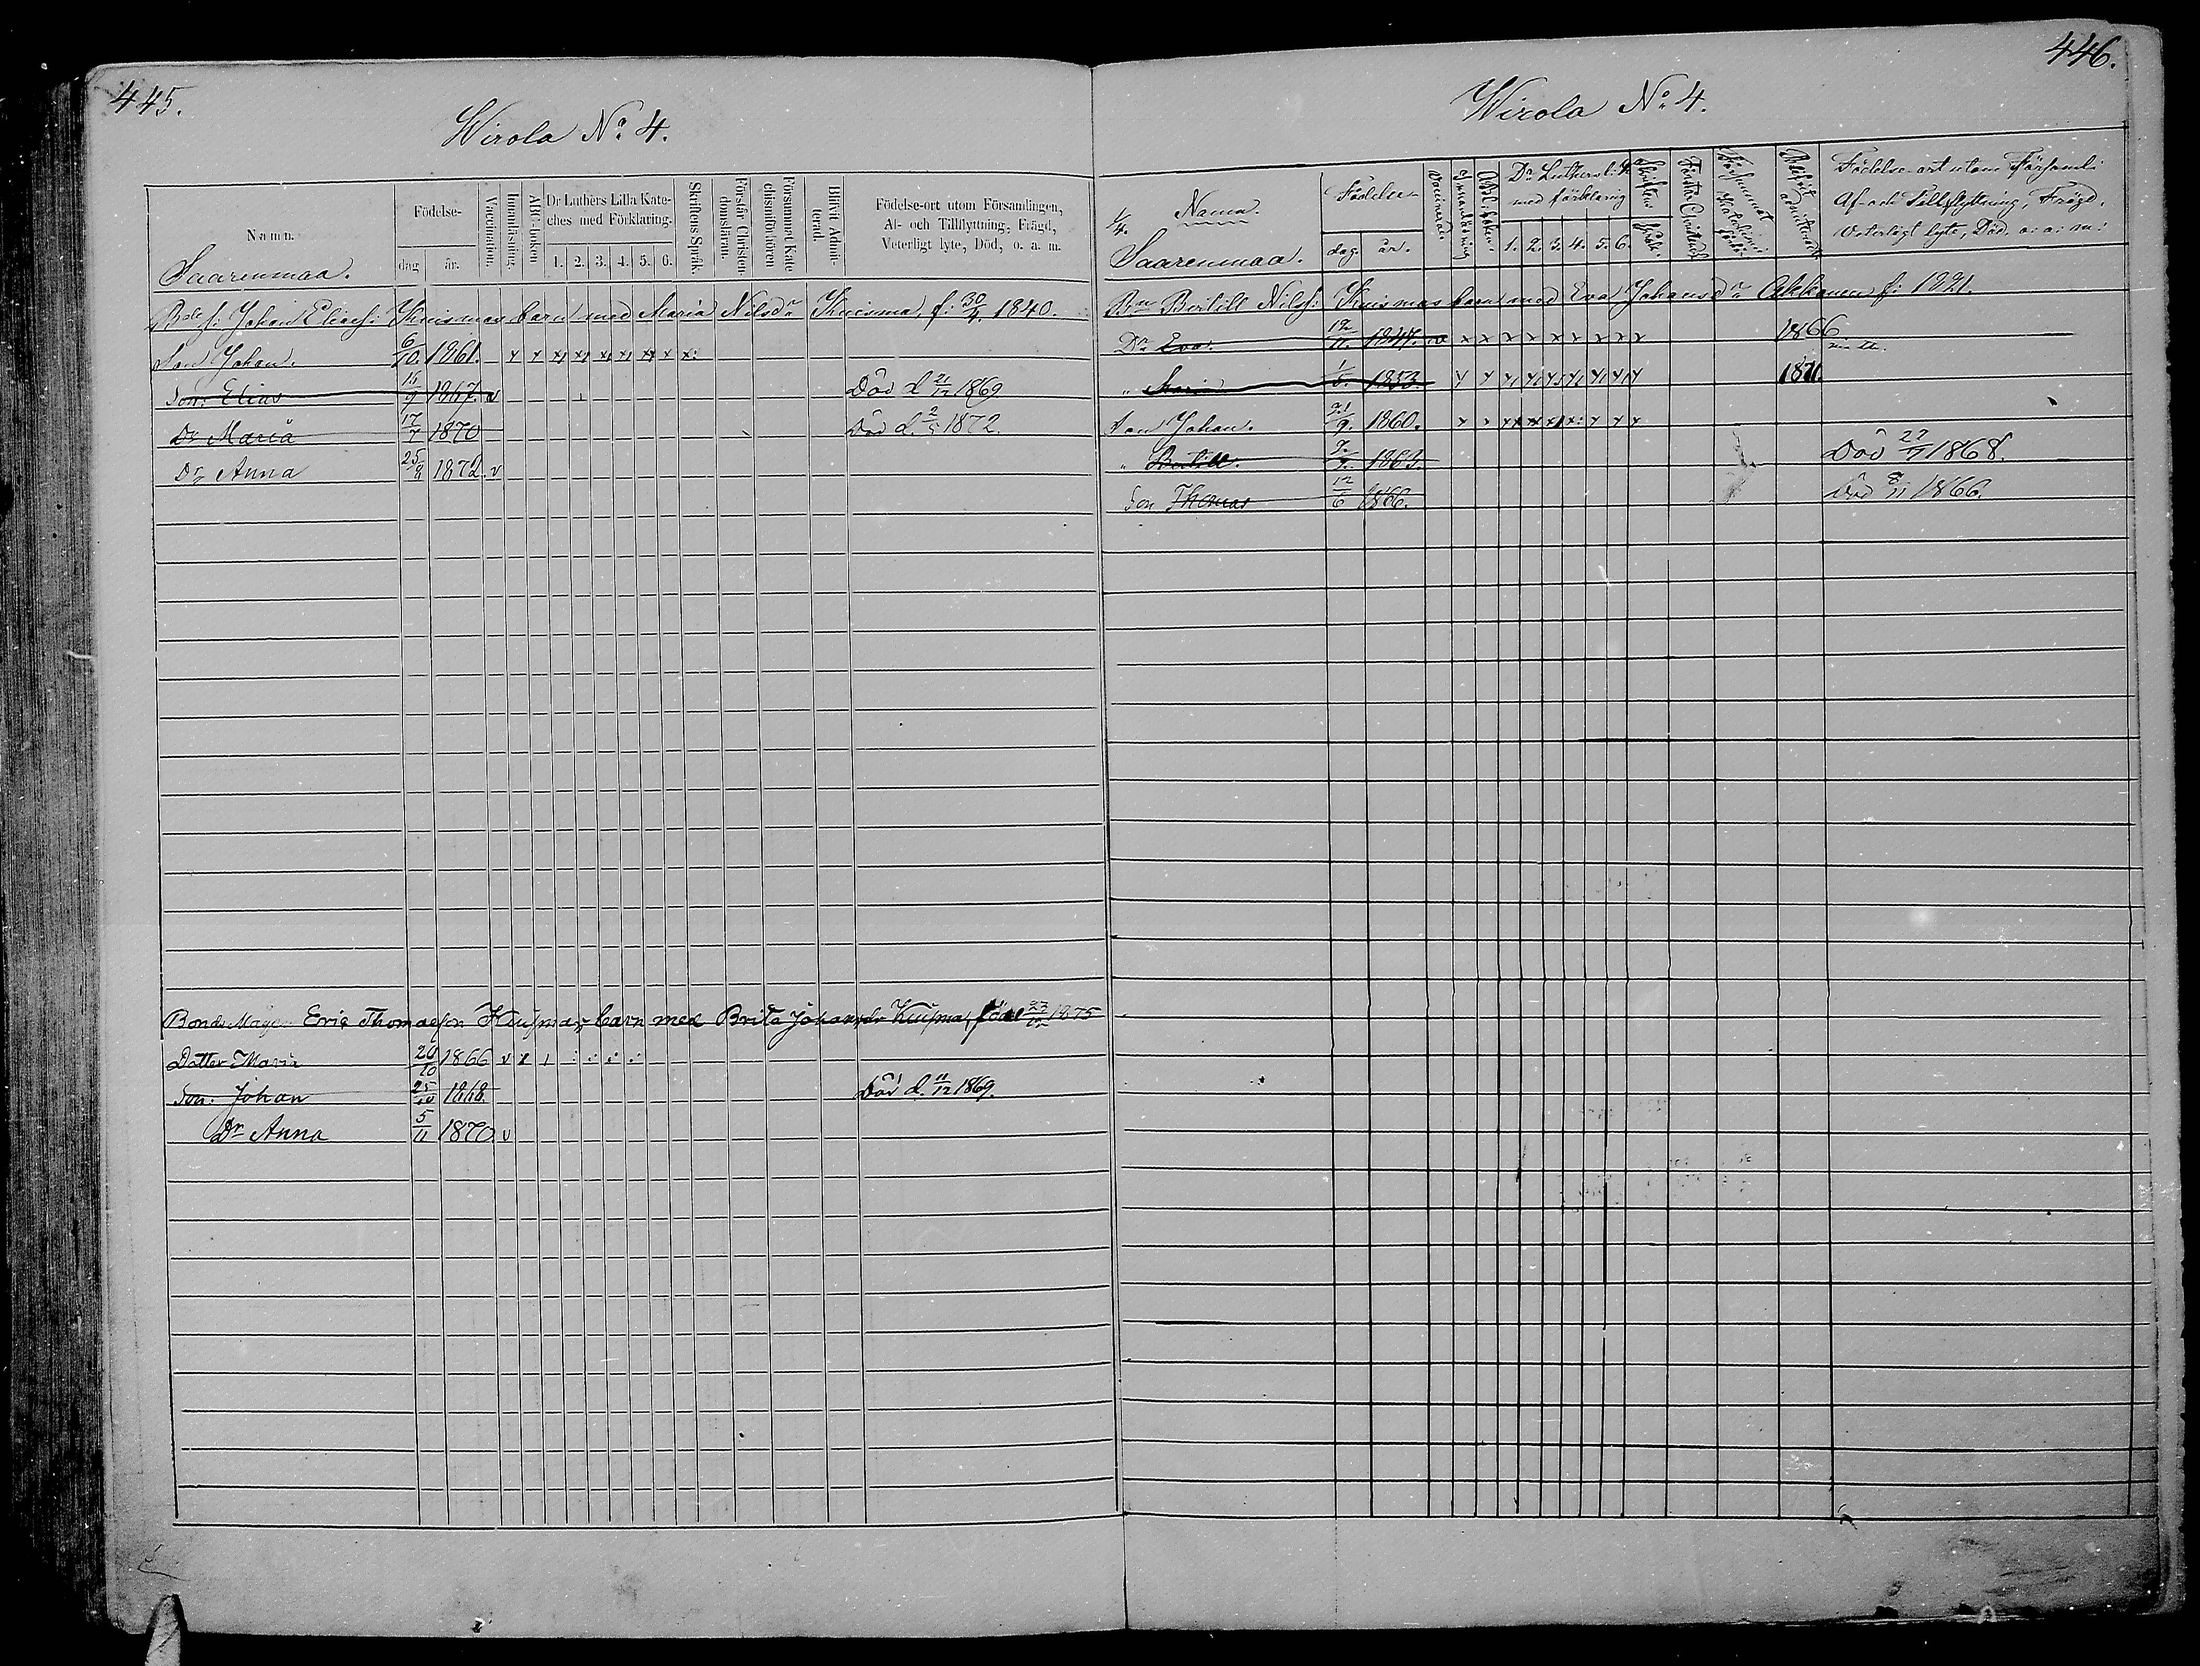 445.
Wirola No 4.
Namn.
Födelse-
dag
år.
Vaccination.
Innanläsning.
ABC-boken
Dr Luthers Lilla Kate-
ches med Förklaring.
1. 2. 3. 4. 5. 6.
Skriftens Språk.
Förstår Christen-
domsläran.
Försummat Kate
chismiiförhören
Blifvit Admit-
terad.
Födelse-ort utom Församlingen,
Af- och Tillflyttning, Frägd,
Veterligt lyte, Död, o. a. m.
Saarenmaa.
Johan Eliaes: Kuismas barn med Maria Nilsdr Kuisma, f: 30/4. 1840.
Son Johan. 6/10. 1861. x x x x x x x x x
Son: Elias 1867. v Död d 21/12 1869
Dr Maria 17/7 1870 Död d. 2/5 1872
Dr Anna 25/8 1872. v
Bonde Eric Thomaeson Kuismas barn med Brita Johansdr Kuisma, född 1875
Dotter Maria 20/10 1866 v x
Son. Johan 25/10 1868. Död d. 11/12 1869.
Dr Anna 5/11 1870 v
446.
Wirola No 4.
Namn.
Födelse-
dag. år.
Vaccinerad.
Innanläsning
ABC-boken.
Dr Luthers l: K
med förklaring
1. 2. 3. 4. 5. 6.
Skriftens språk.
Födelse-ort utom Församl:
Af- och Tillflyttning, Frägd,
Veterligt lyte, Död. o: a: m:
1/4.
Saarenmaa.
Bn Bertill Nilss: Kuismas barn med Eva Johansdr Akkanen f: 1821.
Dr Eva. 12/11. 1847. v x x x x x x x x x 1866
" Maria 1/5. 1853. x x x x x x x x x 1871.
Son Johan. 21/9. 1860. x x x x x x x x x
" Bertill. 1863. Död 27/7 1868.
Son Thomas 12/6 1866. Död 8/11 1866.